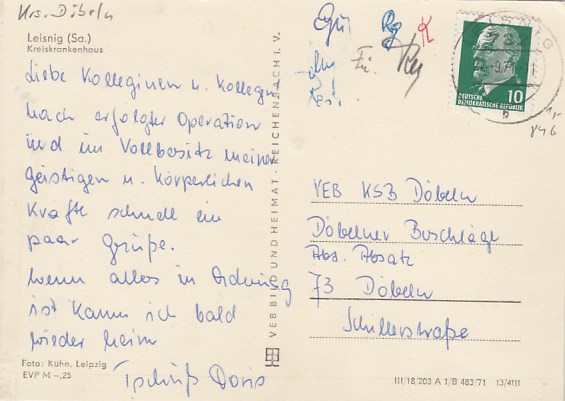 Krs. Döbeln
Leisnig (Sa.)
Kreiskrankenhaus
Liebe Kolleginen u. Kollegen
nach erfolgter Operation
und im Vollbesitz meiner
geistigen u. Körperlichen
Kräfte schnell ein
paar Grüße.
Wenn alles in Ordnung
ist kann ich bald
wieder heim
Tschüß Doris
Foto: Kühn, Leipzig
EVP M –,25
VEB BILD UND HEIMAT · REICHENBACH I. V.
Rg
K
Fü.
DEUTSCHE
DEMOKRATISCHE REPUBLIK
10
846
VEB KSB Döbeln
Döbelner Beschläge
Abs. Absatz
73 Döbeln
Schillerstraße
III/18/203 A 1/B 483/71 13/4111